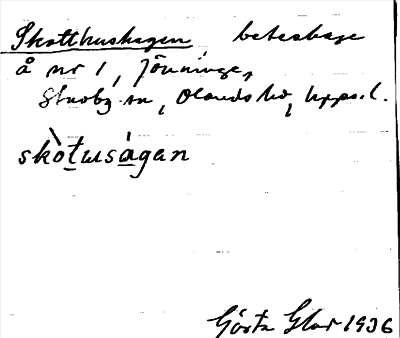 Skotthushagen beteshage
å nr 1, Jönninge,
Stavby sn, Olands hd, Upps. l.
skòtuságan
Gösta Glas 1936